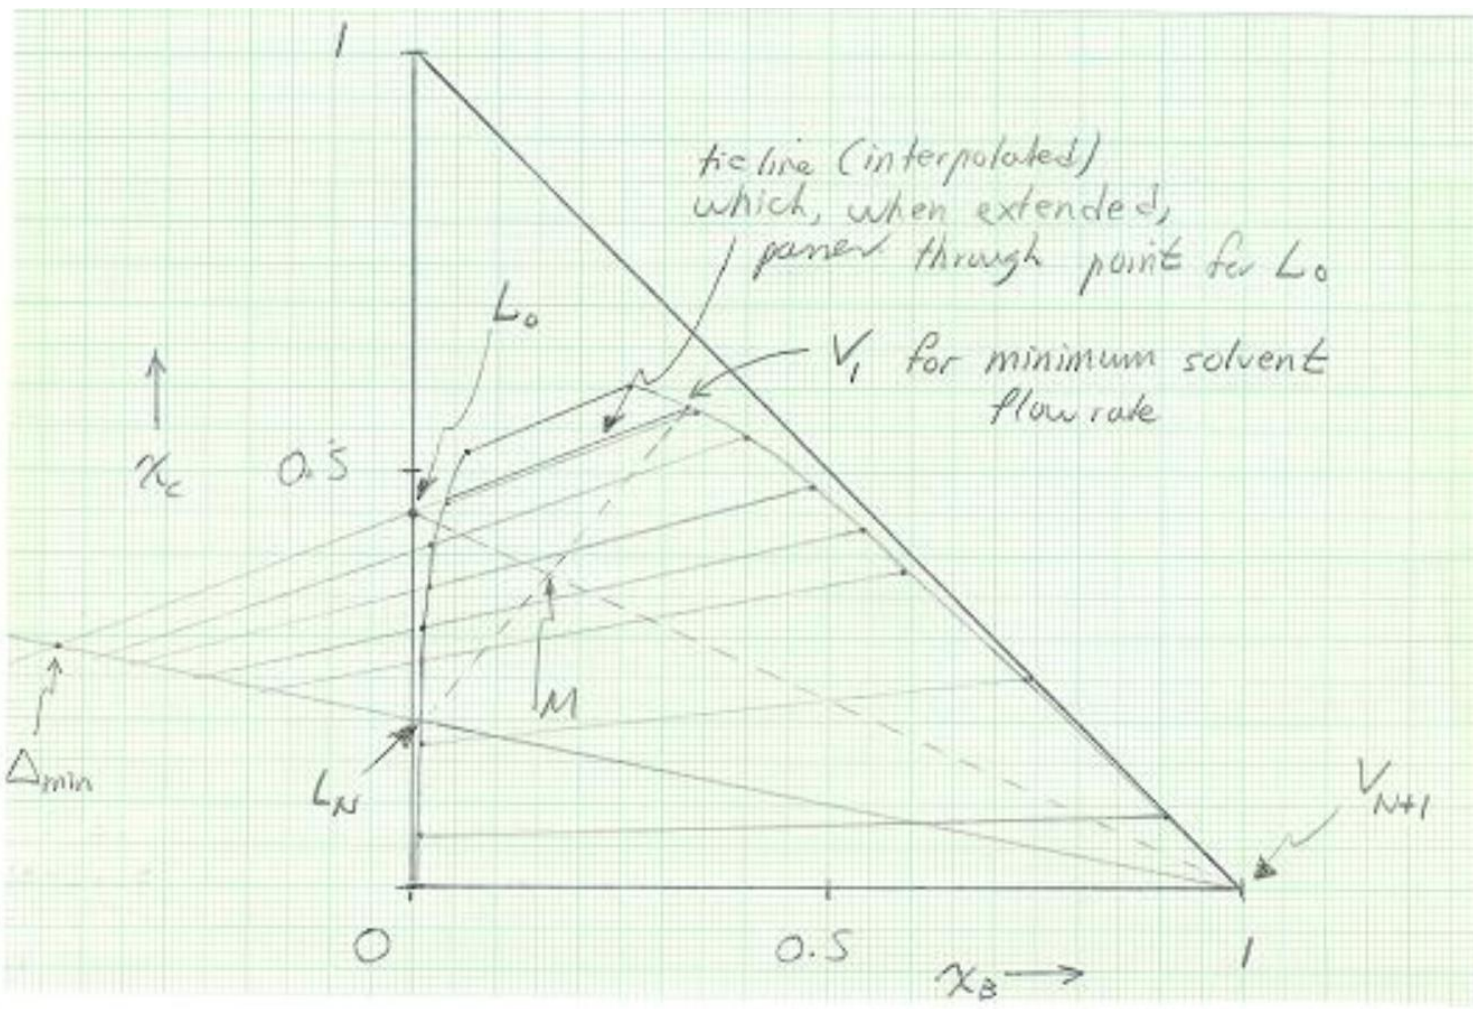 1
tie line (interpolated)
which, when extended,
passes through point for L₀
L₀
V₁ for minimum solvent
flow rate
x_C
0.5
M
Δmin
L_N
V_N+1
0
0.5
x_B
1